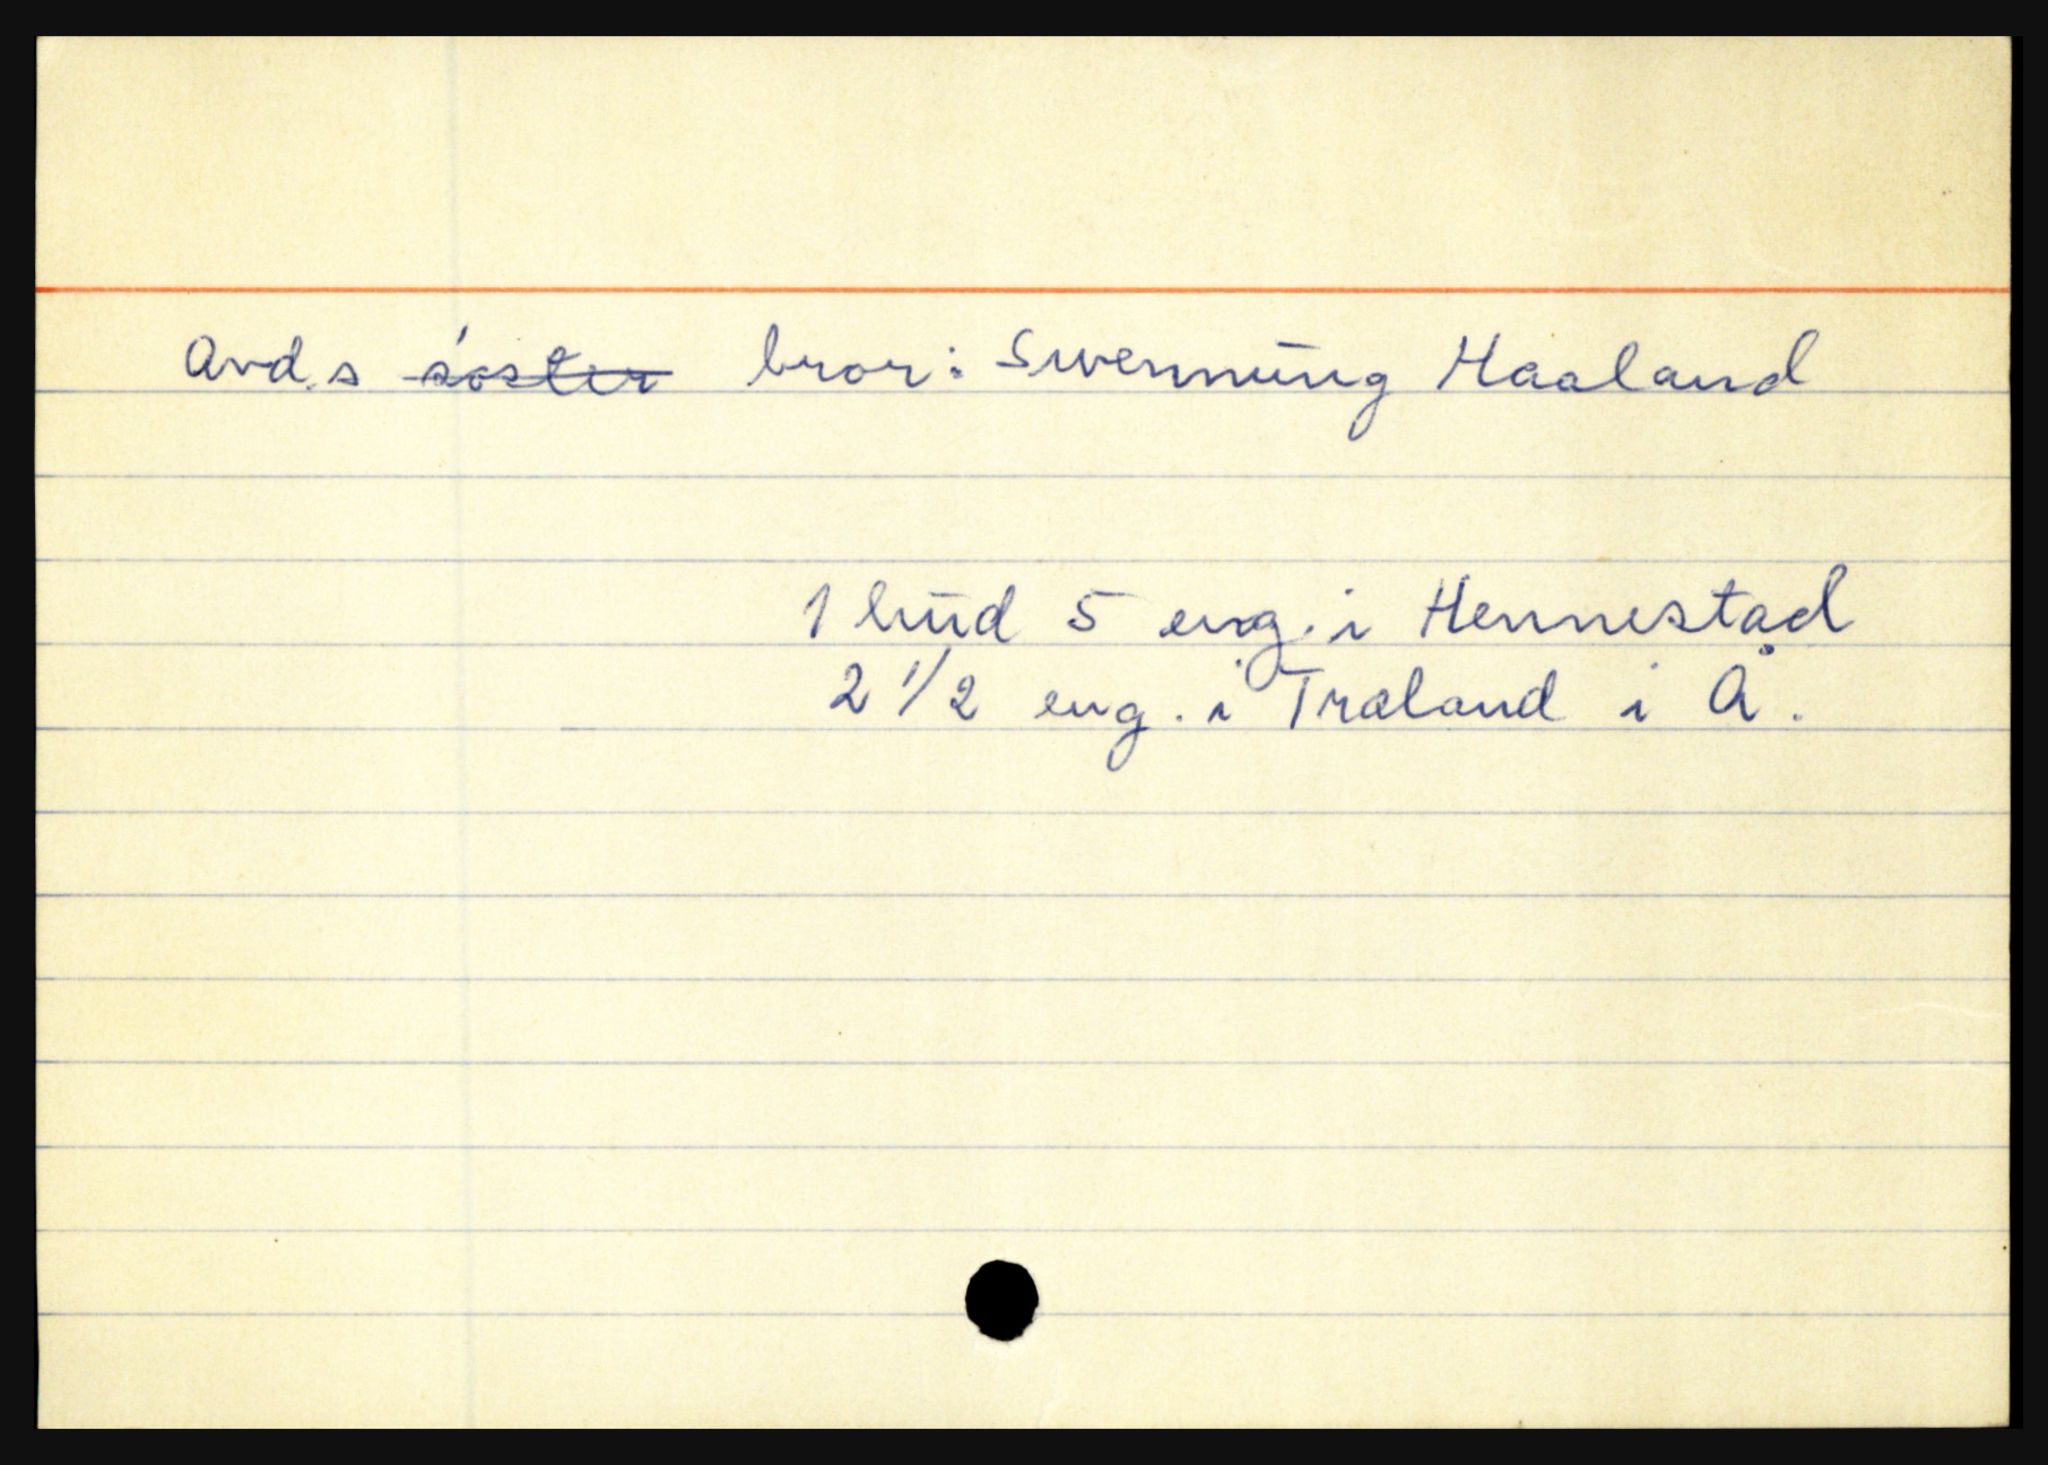 Avd.s ~~söster~~ bror: Swenning Haaland
1 hud 5 eng. i Hennestad
2 1/2 eng. i Träland i Å.